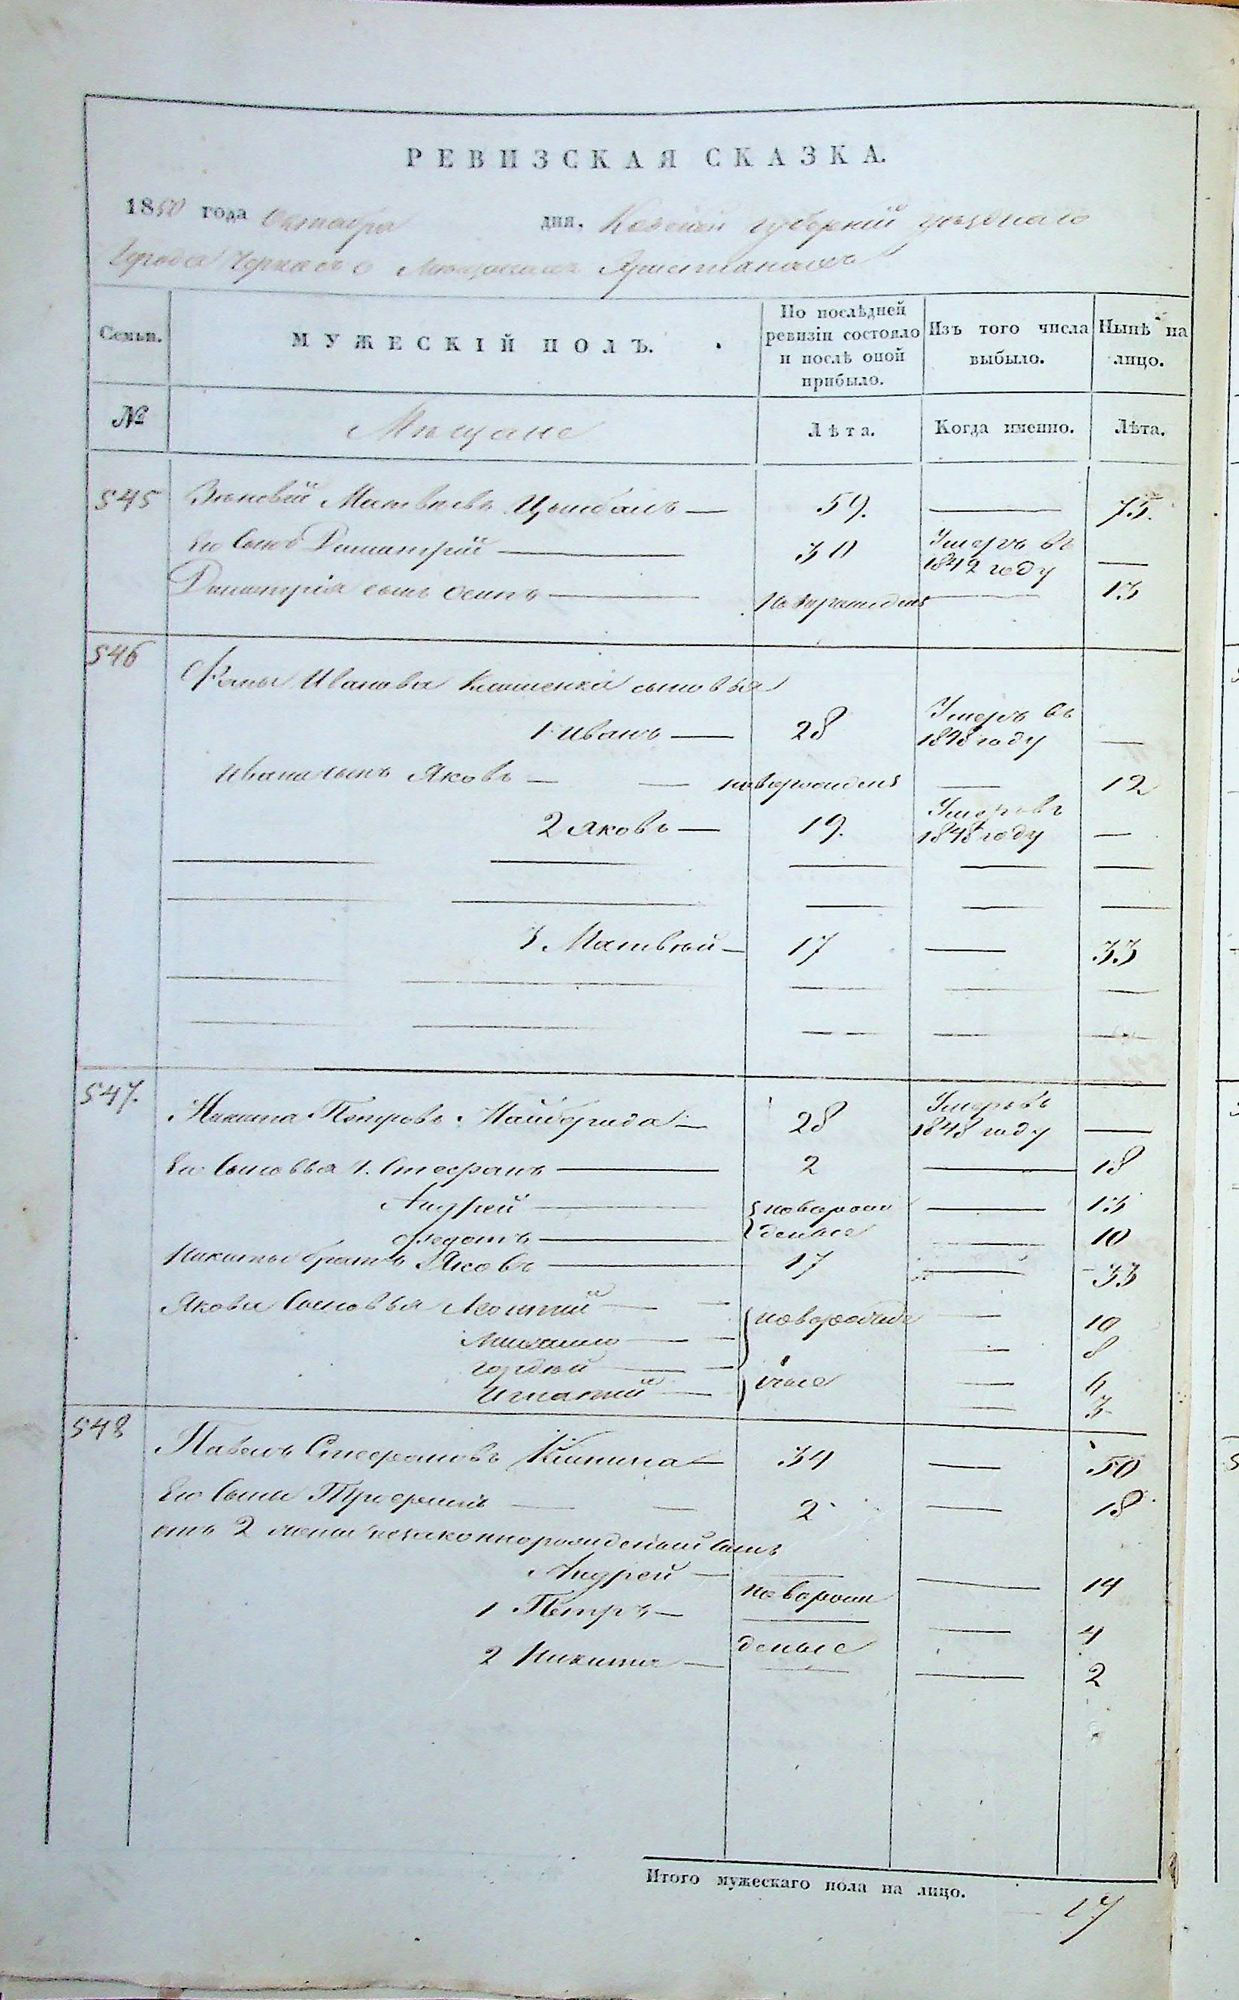 РЕВИЗСКАЯ СКАЗКА.
1850 года Октября дня, Кіевской губерніи уѣзднаго
Города Черкасъ о Мѣщанахъ Христіанахъ
Семьи.
МУЖЕСКІЙ ПОЛЪ.
По послѣдней ревизіи состояло и послѣ оной прибыло.
Изъ того числа выбыло.
Нынѣ на лицо.
№
Мѣщане
Лѣта.
Когда именно.
Лѣта.
545 Зѣновій Матвѣевъ Цымбалъ — 59. — 75.
Его Сынъ Димитрій — 30 Умеръ въ 1842 году —
Димитрія сынъ Осипъ — Новорожденъ — 13
546
Фомы Иванова сыновья
1 Иванъ — 28 Умеръ въ 1848 году —
Ивана сынъ Яковъ — — новорожденъ — 12
2 Яковъ — 19. Умеръ въ 1848 году —
3. Матвѣй — 17 — 33
547.
Никита Петровъ Майборида — 28 Умеръ въ 1848 году —
Его Сыновья 1. Стефанъ — 2 — 18
Андрей — новорож — 13
Федотъ — денные — 10
Никиты братъ Яковъ — 17 — 33
Якова Сыновья — — новорожде — 10
Михаило — — — 8
Гордѣй — — нные — 6
Игнатій — — 3
548
Павелъ Стефановъ — 34 — 50
Его Сынъ — — 2 — 18
отъ 2 жены незаконнорожденный сынъ
Андрей — — — 14
1 Петръ — новорож — 4
2 Никита — денные — 2
Итого мужескаго пола на лицо. 17